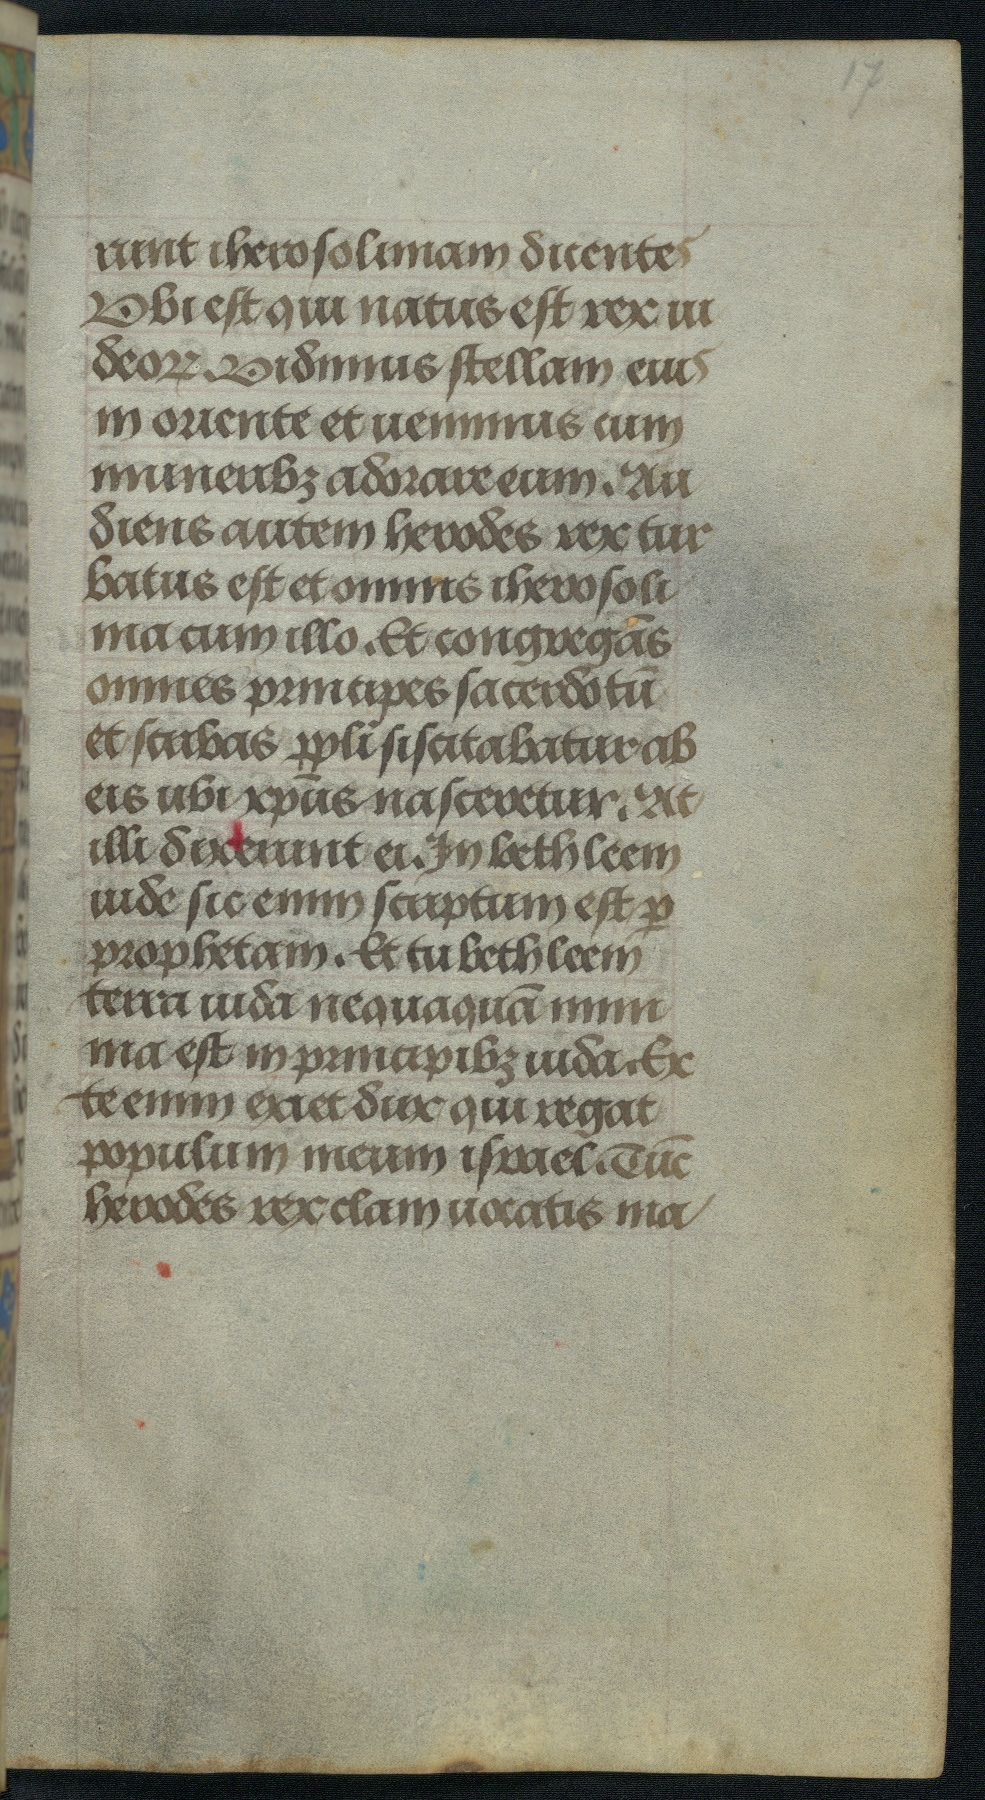 17
runt iherosolimam dicentes
Vbi est qui natus est rex iu
deoꝝ. Vidimus stellam eius
in oriente et uenimus cum
muneribꝫ adorare eum. Au
diens autem herodes rex tur
batus est et omnis iherosoli
ma cum illo. Et congregãs
omnes principes sacerdotũ
et scribas ppl̃i siscitabatur ab
eis ubi xp̃us nasceretur. At
illi dixerunt ei. In bethleem
iude sic enim scriptum est ꝑ
prophetam. Et tu bethleem
terra iuda nequaquã mini
ma est in principibꝫ iuda. Ex
te enim exiet dux qui regat
populum meum israel. Tũc
herodes rex clam uocatis ma